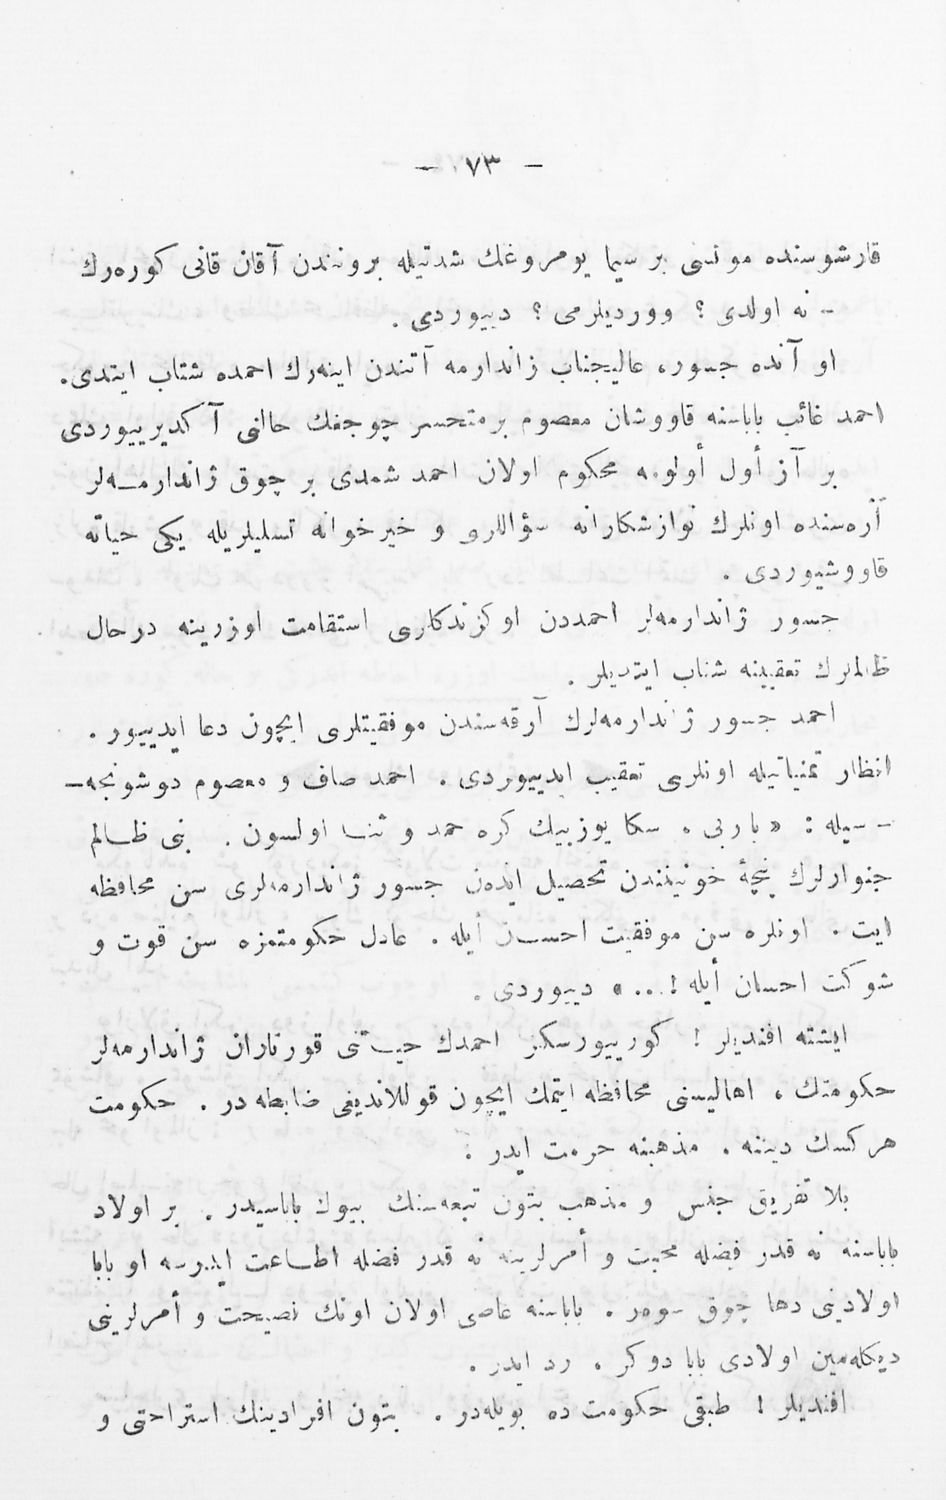 — ٧٣ —
قارشوسنده مونسی بر سیما یومروغك شدتیله برونندن آقان قانی كوره‌رك
- نه اولدی ؟ ووردیلرمی ؟ دییوردی .
او آنده جسور، عالیجناب ژاندارمه آتندن اینه‌رك احمده شتاب ایتدی.
احمد غائب باباسنه قاووشان معصوم بر متحسر چوجغك حالنی آكدیرییوردی
بر آز أول أولومه محكوم اولان احمد شمدی بر چوق ژاندارمه‌لر
آره‌سنده اونلرك نوازشكارانه سؤاللری و خیرخوانه تسلیلریله یكی حیاته
قاووشیوردی .
جسور ژاندارمه‌لر احمددن اوكرندكلری استقامت اوزرینه درحال
ظالملرك تعقیبنه شتاب ایتدیلر .
احمد جسور ژاندارمه‌لرك آرقه‌سندن موفقیتلری ایچون دعا ایدییور .
انظار تمنیاتیله اونلری تعقیب ایدییوردی . احمد صاف و معصوم دوشونجه—
- سیله : « یا ربی ، سكا یوزبیك كره حمد و ثنا اولسون . بنی ظالم
جنوارلرك پنچهٔ خونیندن تحصیل ایدن جسور ژاندارمه‌لری سن محافظه
ایت . اونلره سن موفقیت احسان أیله . عادل حكومتمزه سن قوت و
شوكت احسان أیله !... » دییوردی .
ایشته افندیلر ! كورییورسكز احمدك حیاتنی قورتاران ژاندارمه‌لر
حكومتك ، اهالیسنی محافظه ایتمك ایچون قوللاندیغی ضابطه در . حكومت
هركسك دیننه . مذهبنه حرمت ایدر .
بلا تفریق جنس و مذهب بتون تبعه‌سنك بیوك باباسیدر . بر اولاد
باباسنه نه قدر فضله محبت و أمرلرینه نه قدر فضله اطاعت ایدرسه او بابا
اولادینی دها چوق سوه‌ر . باباسنه عاصی اولان اونك نصیحت و أمرلرینی
دیكله‌مین اولادی بابا دوكر . رد ایدر .
افندیلر ! طبقی حكومت ده بویله‌در . بتون افرادینك استراحتی و